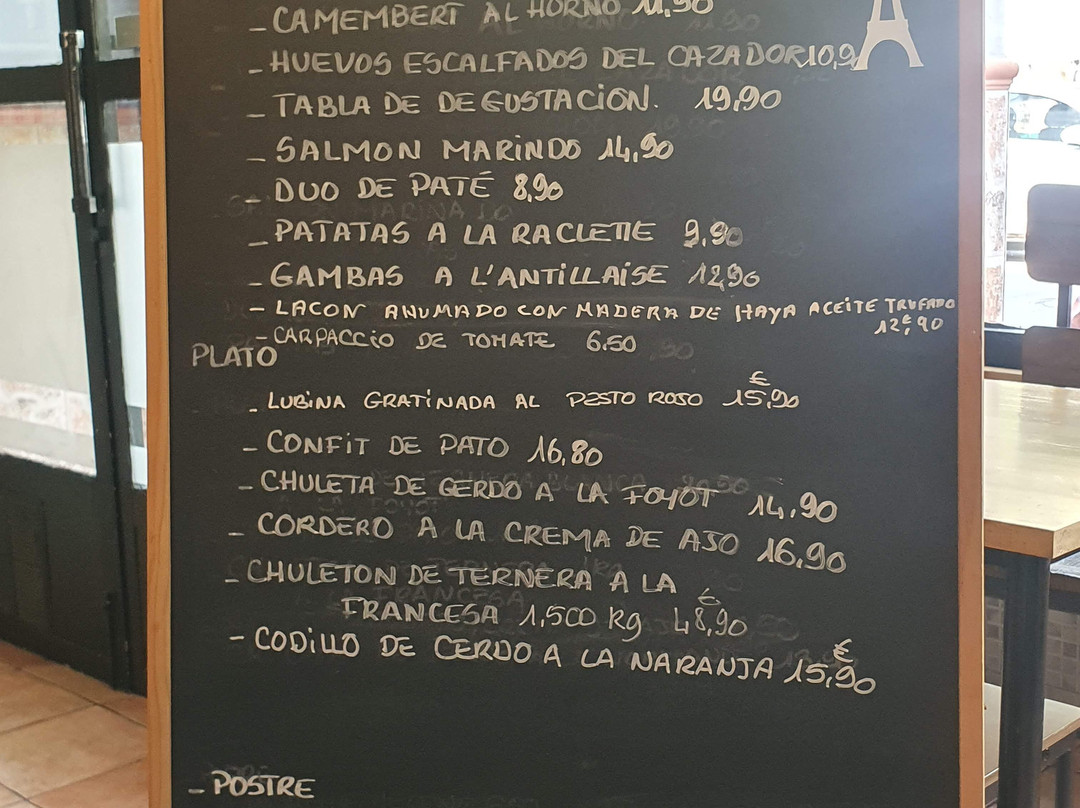 - CAMEMBERT AL HORNO 11,90
- HUEVOS ESCALFADOS DEL CAZADOR 10,9
- TABLA DE DEGUSTACION. 19,90
- SALMON MARINDO 14,90
- DUO DE PATÉ 8,90
- PATATAS A LA RACLETTE 9.90
- GAMBAS A L'ANTILLAISE 12,90
- LACON AHUMADO CON MADERA DE HAYA ACEITE TRUFADO
12,€90
- CARPACCIO DE TOMATE 6.50
PLATO
- LUBINA GRATINADA AL PESTO ROSO 15,€90
- CONFIT DE PATO 16,80
- CHULETA DE CERDO A LA FOYOT 14,90
- CORDERO A LA CREMA DE AJO 16,90
- CHULETON DE TERNERA A LA
FRANCESA 1,500 Kg 48,€90
- CODILLO DE CERDO A LA NARANJA 15,€90
- POSTRE